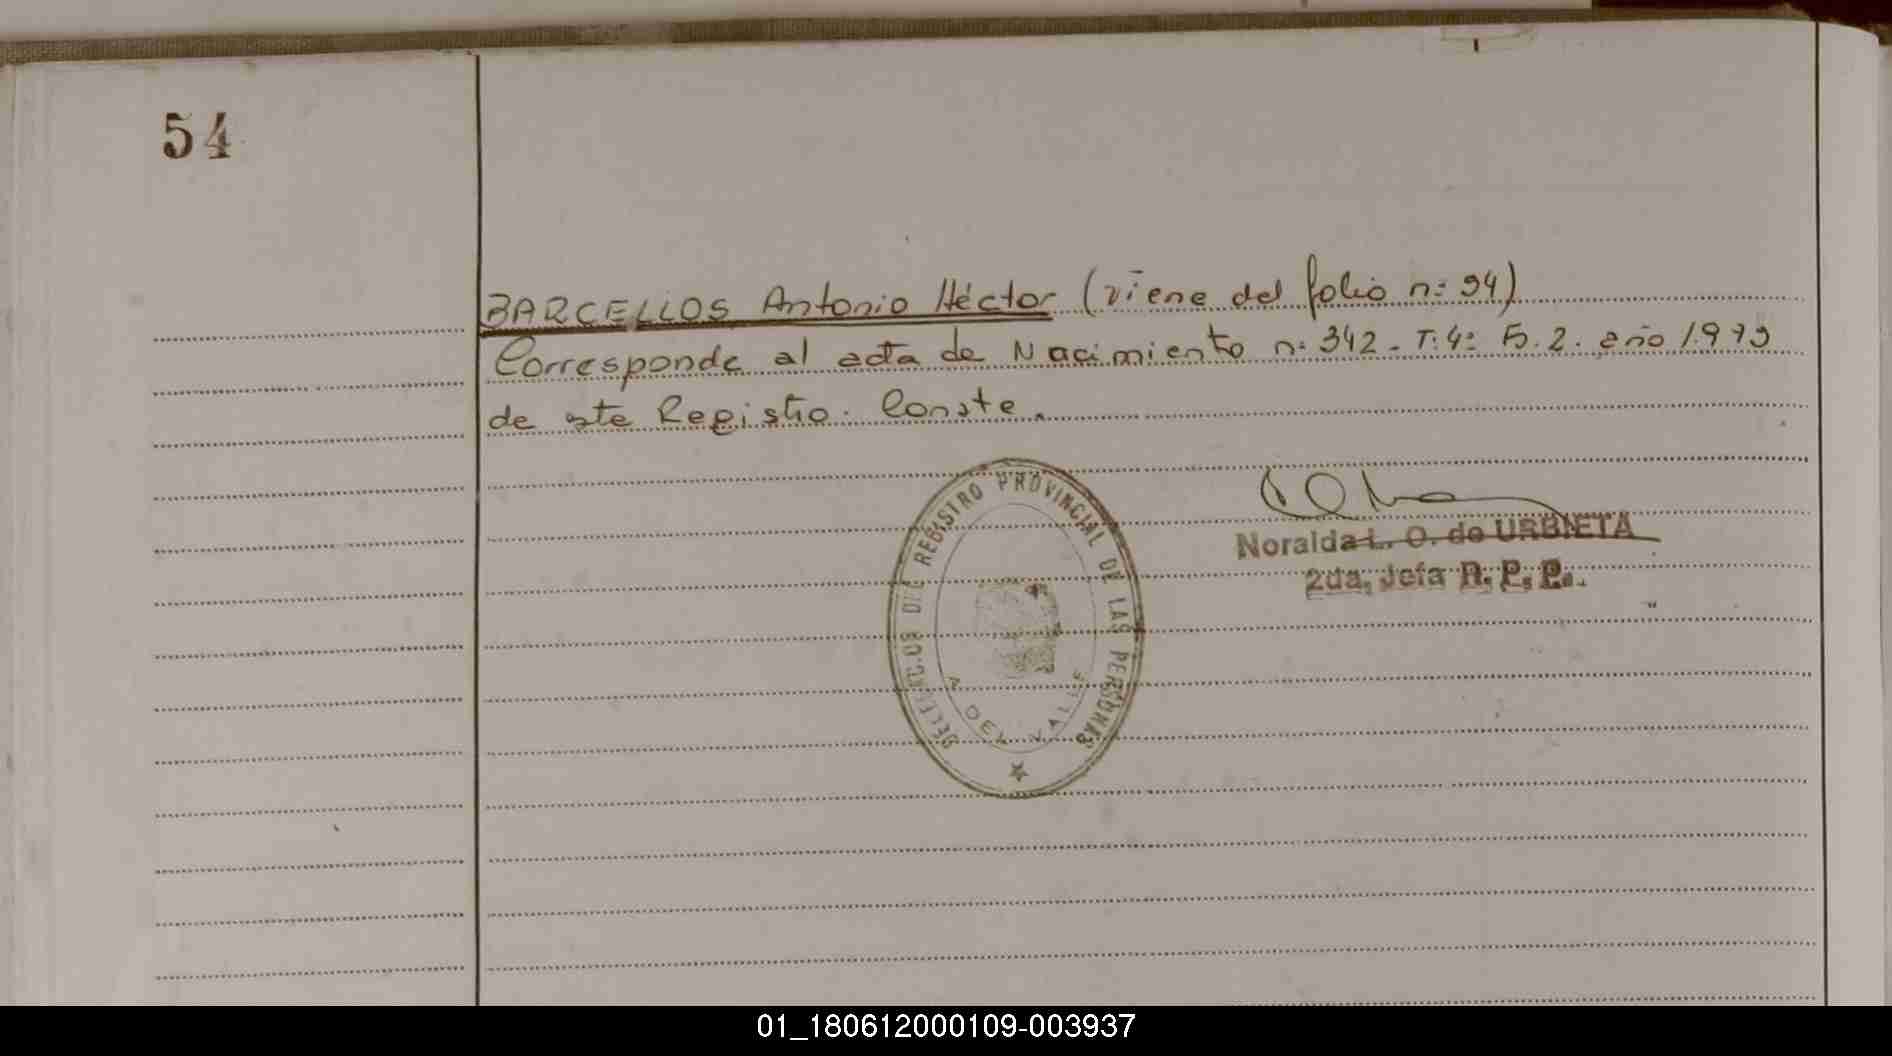 54
BARCELLOS Antonio Héctor (viene del folio n: 94)
Corresponde al acta de Nacimiento n: 342 - T: 4: F. 2. año 1.979
de este Registro. Conste.
DEL REGISTRO PROVINCIAL DE LAS PERSONAS
DEL VALLE
Noralda L. O. de URBIETA
2da. Jefa R. P. P.
01_180612000109-003937